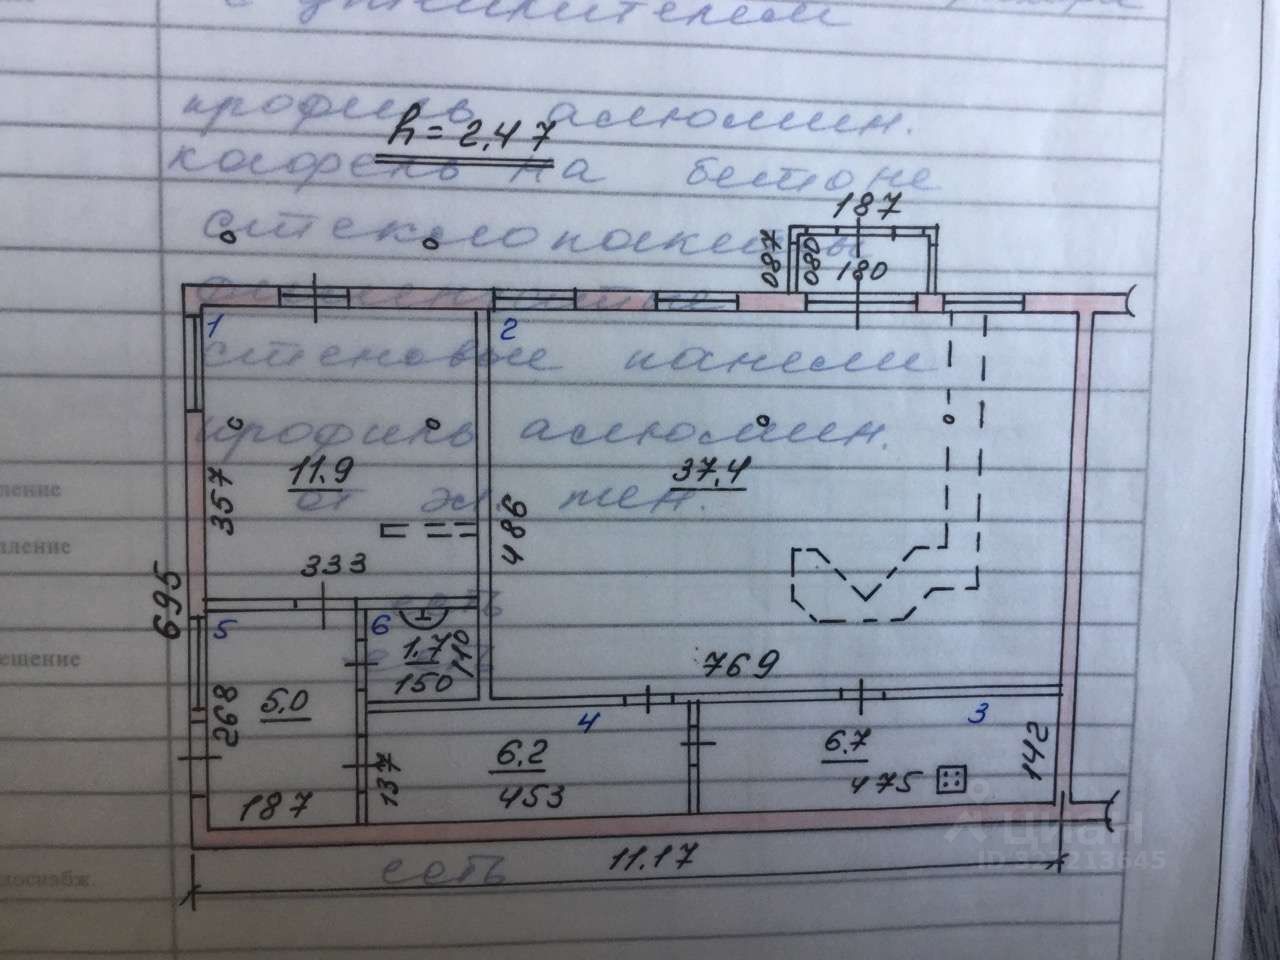 с утеплителем
профиль алюмин.
h = 2,47
кафель на бетоне
187
стеклопакеты
087
080
180
1
2
стеновые панели
профиль алюмин.
11.9
37,4
ление
от эл. тен.
357
486
пление
333
695
есть
5
6
1.7
110
ещение
769
150
5,0
268
4
3
6.2
6.7
142
137
475
453
187
ЦИАН
11.17
сеть
доснабж.